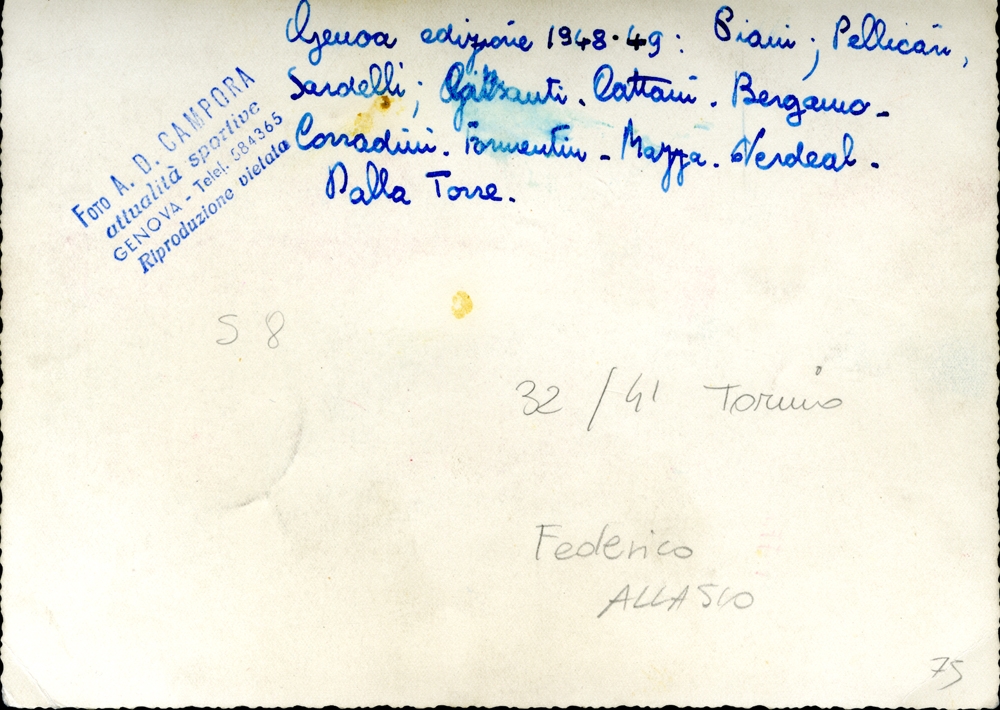 Genoa edizione 1948-49: Piani; Pellicari,
Sardelli; Cattani. Bergamo -
Corradini. Formentin - Mazza. Verdeal -
Dalla Torre.
FOTO A. D. CAMPORA
attualità sportive
GENOVA - Telef. 584365
Riproduzione vietata
S 8
32 / 41 Torino
Federico
ALLASIO
75